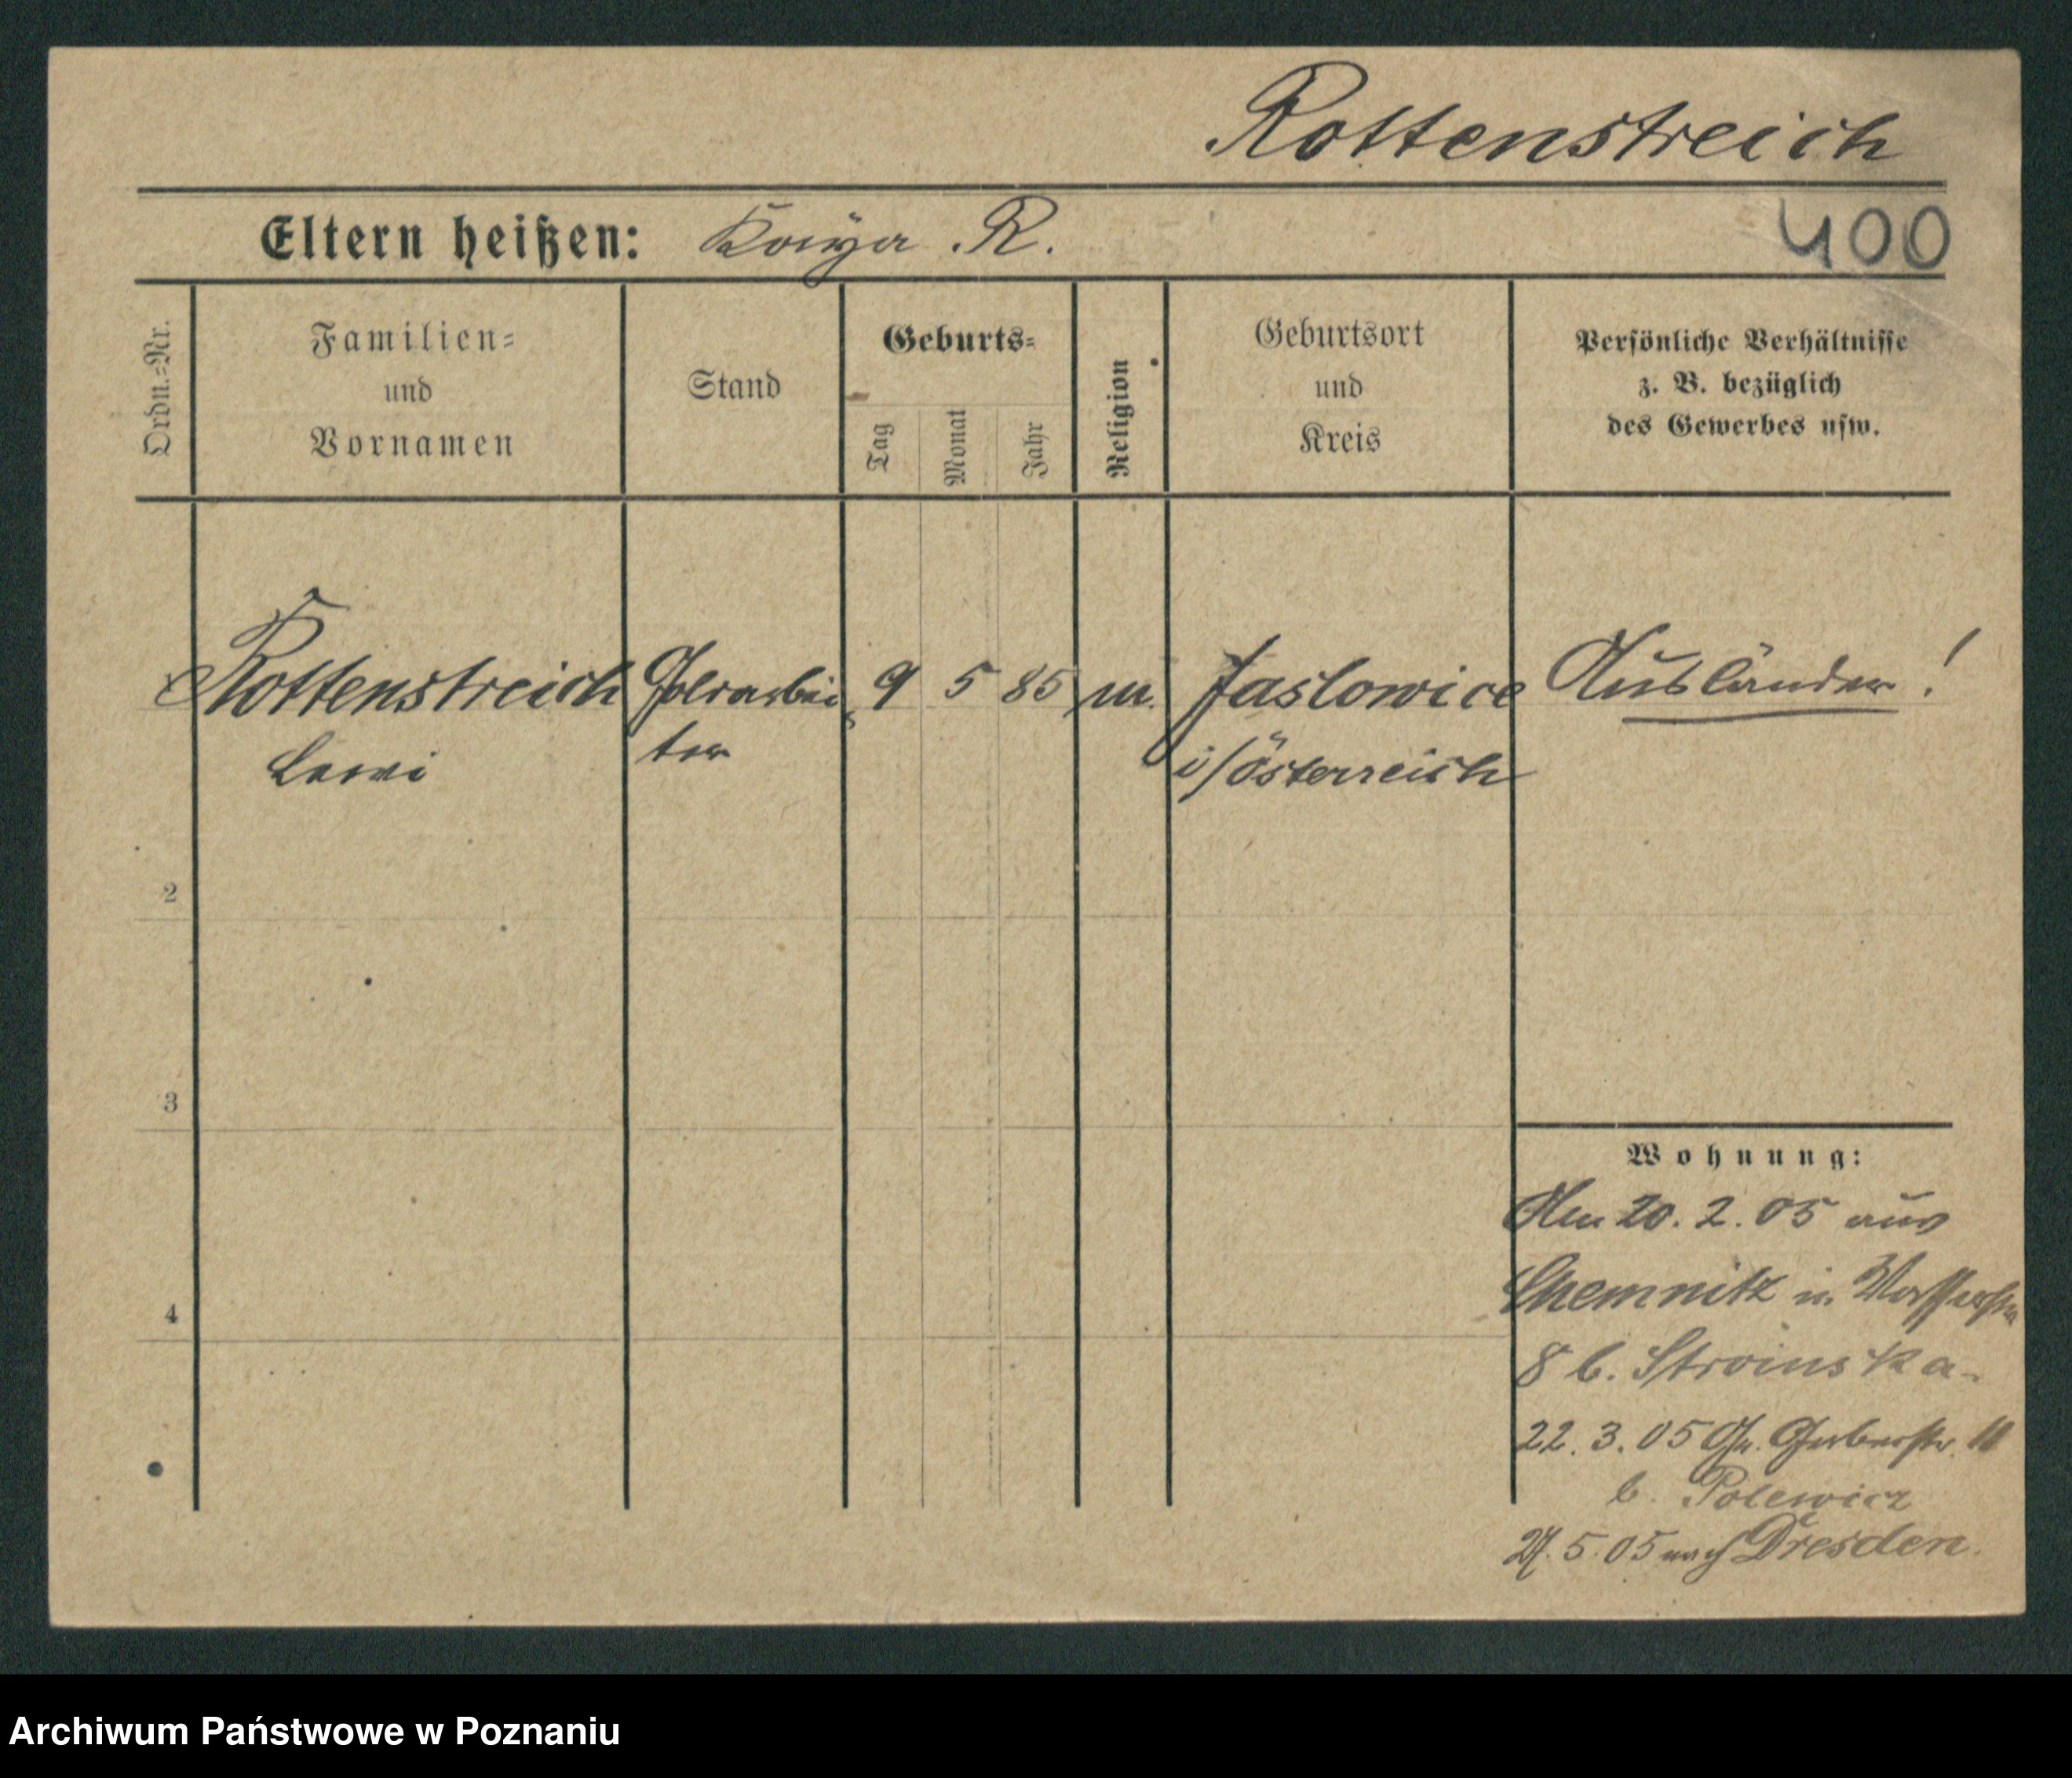 Rottenstreich
Eltern heißen: R.
400
Ordn.=Nr.
Familien=
und
Vornamen
Stand
Geburts=
Tag
Monat
Jahr
Religion
Geburtsort
und
Kreis
Persönliche Verhältnisse
z. B. bezüglich
des Gewerbes usw.
Rottenstreich
9 5 85 m.
Jaslowice
Ausländer!
Lewi
ter
i/Österreich
2
3
4
Wohnung:
Am 20. 2. 05 aus
Chemnitz in Wasserstr
8 b. Stroinska.
22. 3. 05 Gr. Gerberstr. 11
b. Polewicz
27. 5. 05 nach Dresden.
Archiwum Państwowe w Poznaniu